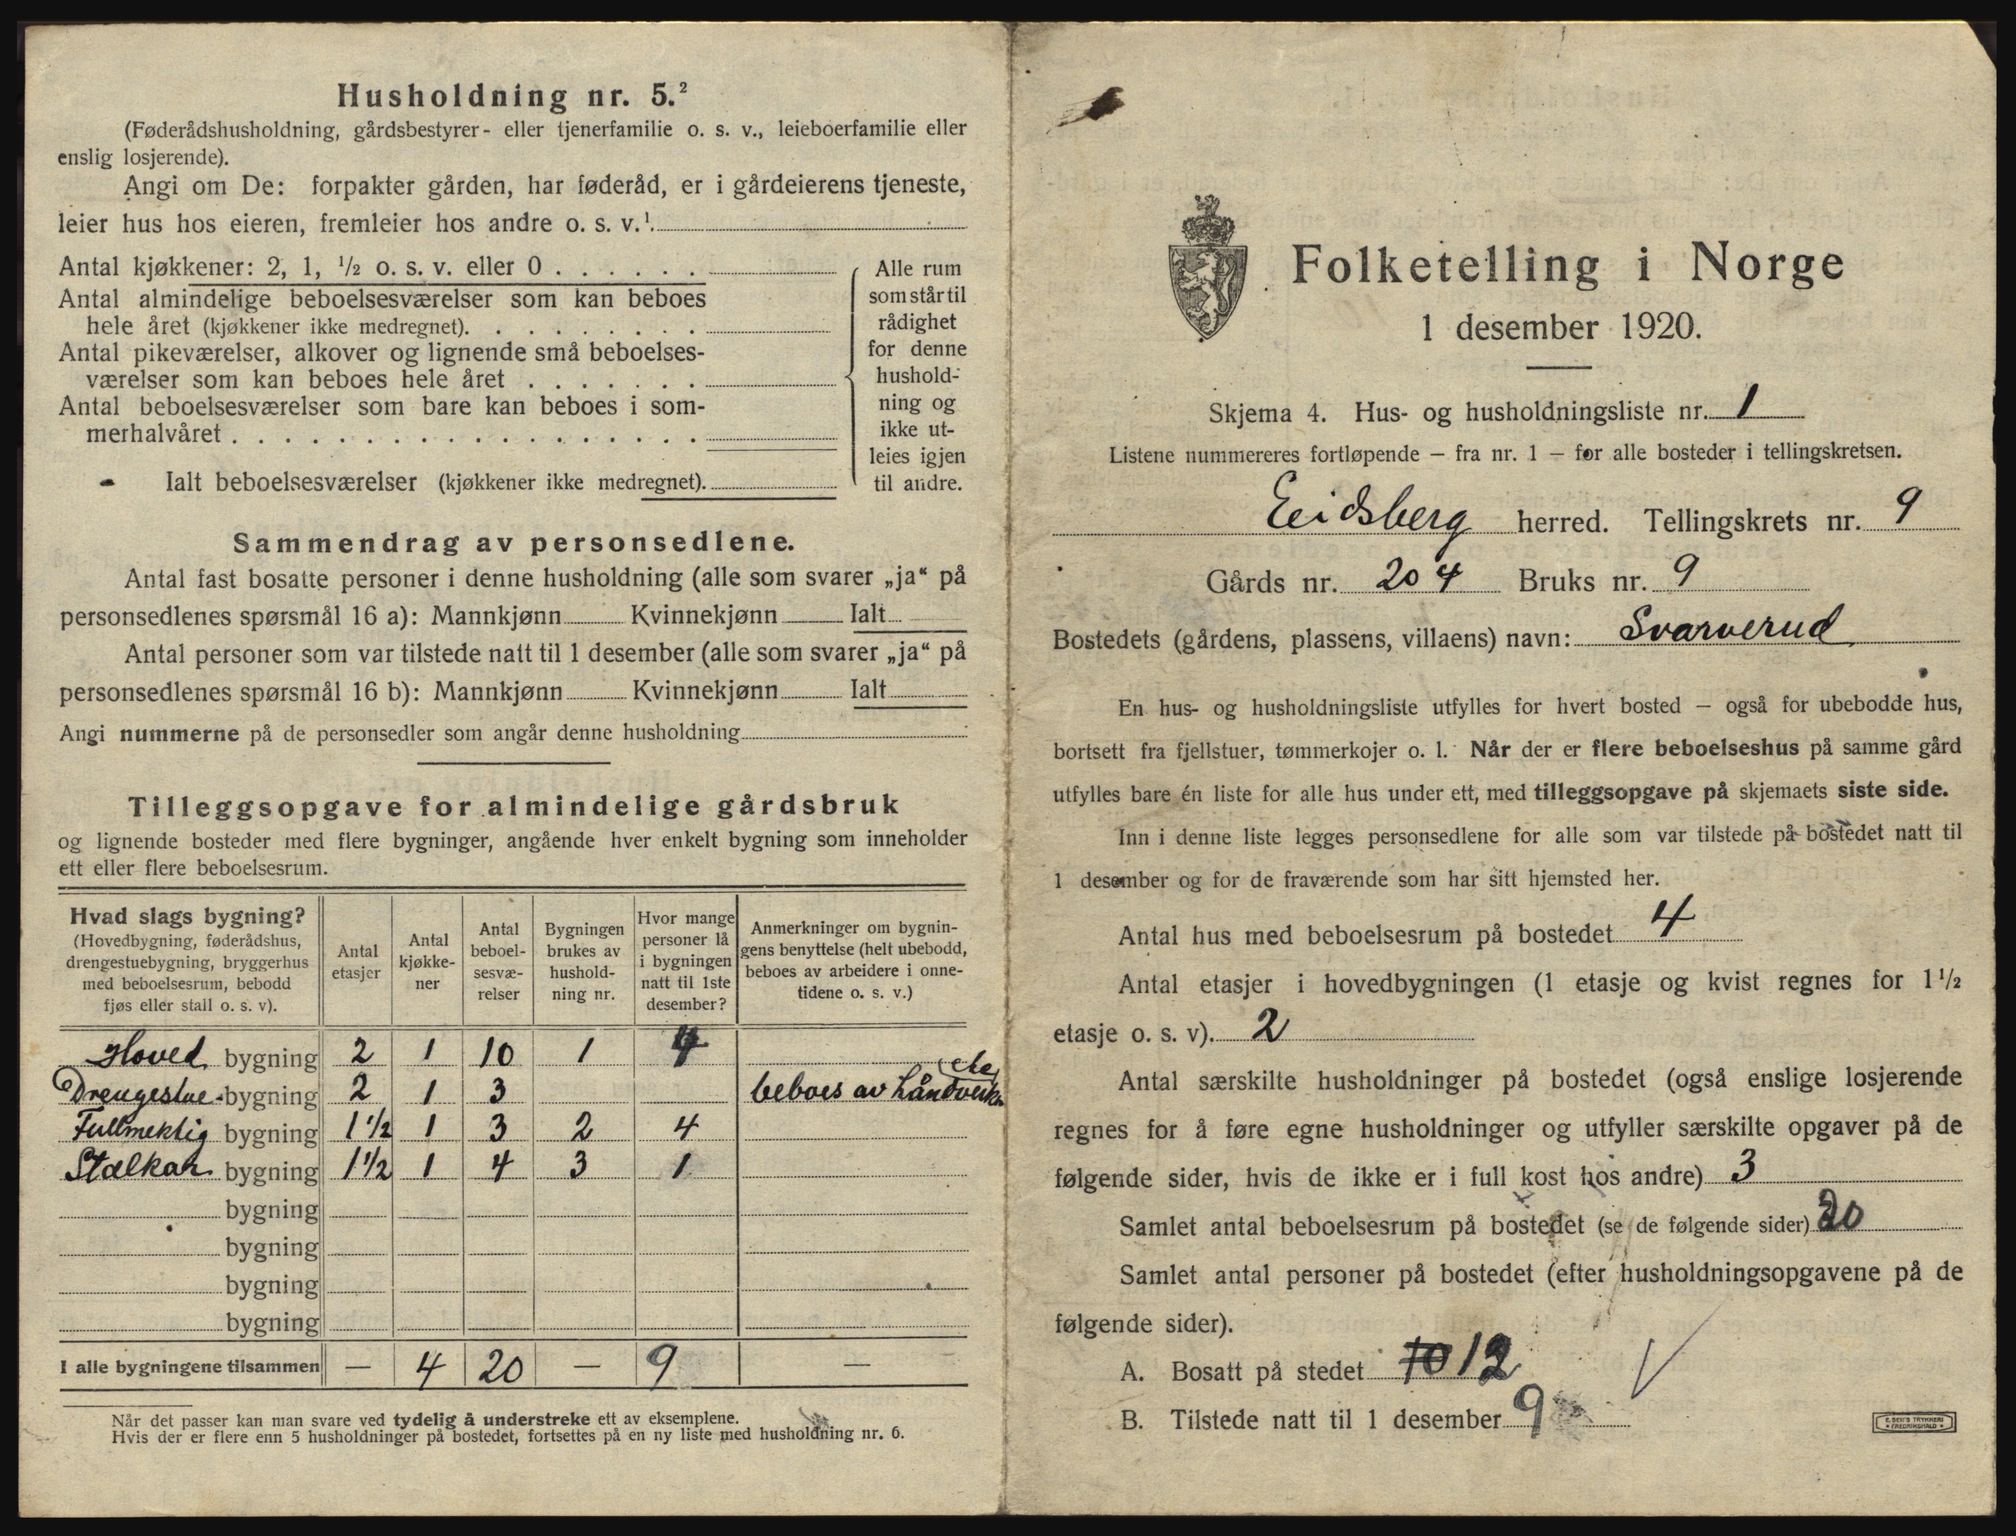 Husholdning nr. 5.²
(Føderådshusholdning, gårdsbestyrer- eller tjenerfamilie o. s. v., leieboerfamilie eller
enslig losjerende).
Angi om De: forpakter gården, har føderåd, er i gårdeierens tjeneste,
leier hus hos eieren, fremleier hos andre o. s. v.¹
Antal kjøkkener: 2, 1, ½ o. s. v. eller 0 . . . . . .
Antal almindelige beboelsesværelser som kan beboes
hele året (kjøkkener ikke medregnet). . . . . . . . .
Antal pikeværelser, alkover og lignende små beboelses-
værelser som kan beboes hele året . . . . . . .
Antal beboelsesværelser som bare kan beboes i som-
merhalvåret . . . . . . . . . . . . . . . . . .
Ialt beboelsesværelser (kjøkkener ikke medregnet).
Alle rum
som står til
rådighet
for denne
hushold-
ning og
ikke ut-
leies igjen
til andre.
Sammendrag av personsedlene.
Antal fast bosatte personer i denne husholdning (alle som svarer „ja“ på
personsedlenes spørsmål 16 a): Mannkjønn Kvinnekjønn Ialt
Antal personer som var tilstede natt til 1 desember (alle som svarer „ja“ på
personsedlenes spørsmål 16 b): Mannkjønn Kvinnekjønn Ialt
Angi nummerne på de personsedler som angår denne husholdning
Tilleggsopgave for almindelige gårdsbruk
og lignende bosteder med flere bygninger, angående hver enkelt bygning som inneholder
ett eller flere beboelsesrum.
Hvad slags bygning?
(Hovedbygning, føderådshus,
drengestuebygning, bryggerhus
med beboelsesrum, bebodd
fjøs eller stall o. s. v).
Antal
etasjer
Antal
kjøkke-
ner
Antal
beboel-
sesvæ-
relser
Bygningen
brukes av
hushold-
ning nr.
Hvor mange
personer lå
i bygningen
natt til 1ste
desember?
Anmerkninger om bygnin-
gens benyttelse (helt ubebodd,
beboes av arbeidere i onne-
tidene o. s. v.)
Hoved bygning 2 1 10 1 4
Drengestue- bygning 2 1 3 beboes av håndverkere
Fullmektig bygning 1 ½ 1 3 2 4
Stalkar bygning 1 ½ 1 4 3 1
bygning
bygning
bygning
bygning
I alle bygningene tilsammen — 4 20 — 9 —
Når det passer kan man svare ved tydelig å understreke ett av eksemplene.
Hvis der er flere enn 5 husholdninger på bostedet, fortsettes på en ny liste med husholdning nr. 6.
Folketelling i Norge
1 desember 1920.
Skjema 4. Hus- og husholdningsliste nr. 1
Listene nummereres fortløpende – fra nr. 1 – for alle bosteder i tellingskretsen.
Eidsberg herred. Tellingskrets nr. 9
Gårds nr. 204 Bruks nr. 9
Bostedets (gårdens, plassens, villaens) navn: Svarverud
En hus- og husholdningsliste utfylles for hvert bosted – også for ubebodde hus,
bortsett fra fjellstuer, tømmerkojer o. l. Når der er flere beboelseshus på samme gård
utfylles bare én liste for alle hus under ett, med tilleggsopgave på skjemaets siste side.
Inn i denne liste legges personsedlene for alle som var tilstede på bostedet natt til
1 desember og for de fraværende som har sitt hjemsted her.
Antal hus med beboelsesrum på bostedet 4
Antal etasjer i hovedbygningen (1 etasje og kvist regnes for 1 ½
etasje o. s. v). 2
Antal særskilte husholdninger på bostedet (også enslige losjerende
regnes for å føre egne husholdninger og utfyller særskilte opgaver på de
følgende sider, hvis de ikke er i full kost hos andre) 3
Samlet antal beboelsesrum på bostedet (se de følgende sider) 20
Samlet antal personer på bostedet (efter husholdningsopgavene på de
følgende sider).
A. Bosatt på stedet 10 12
B. Tilstede natt til 1 desember 9